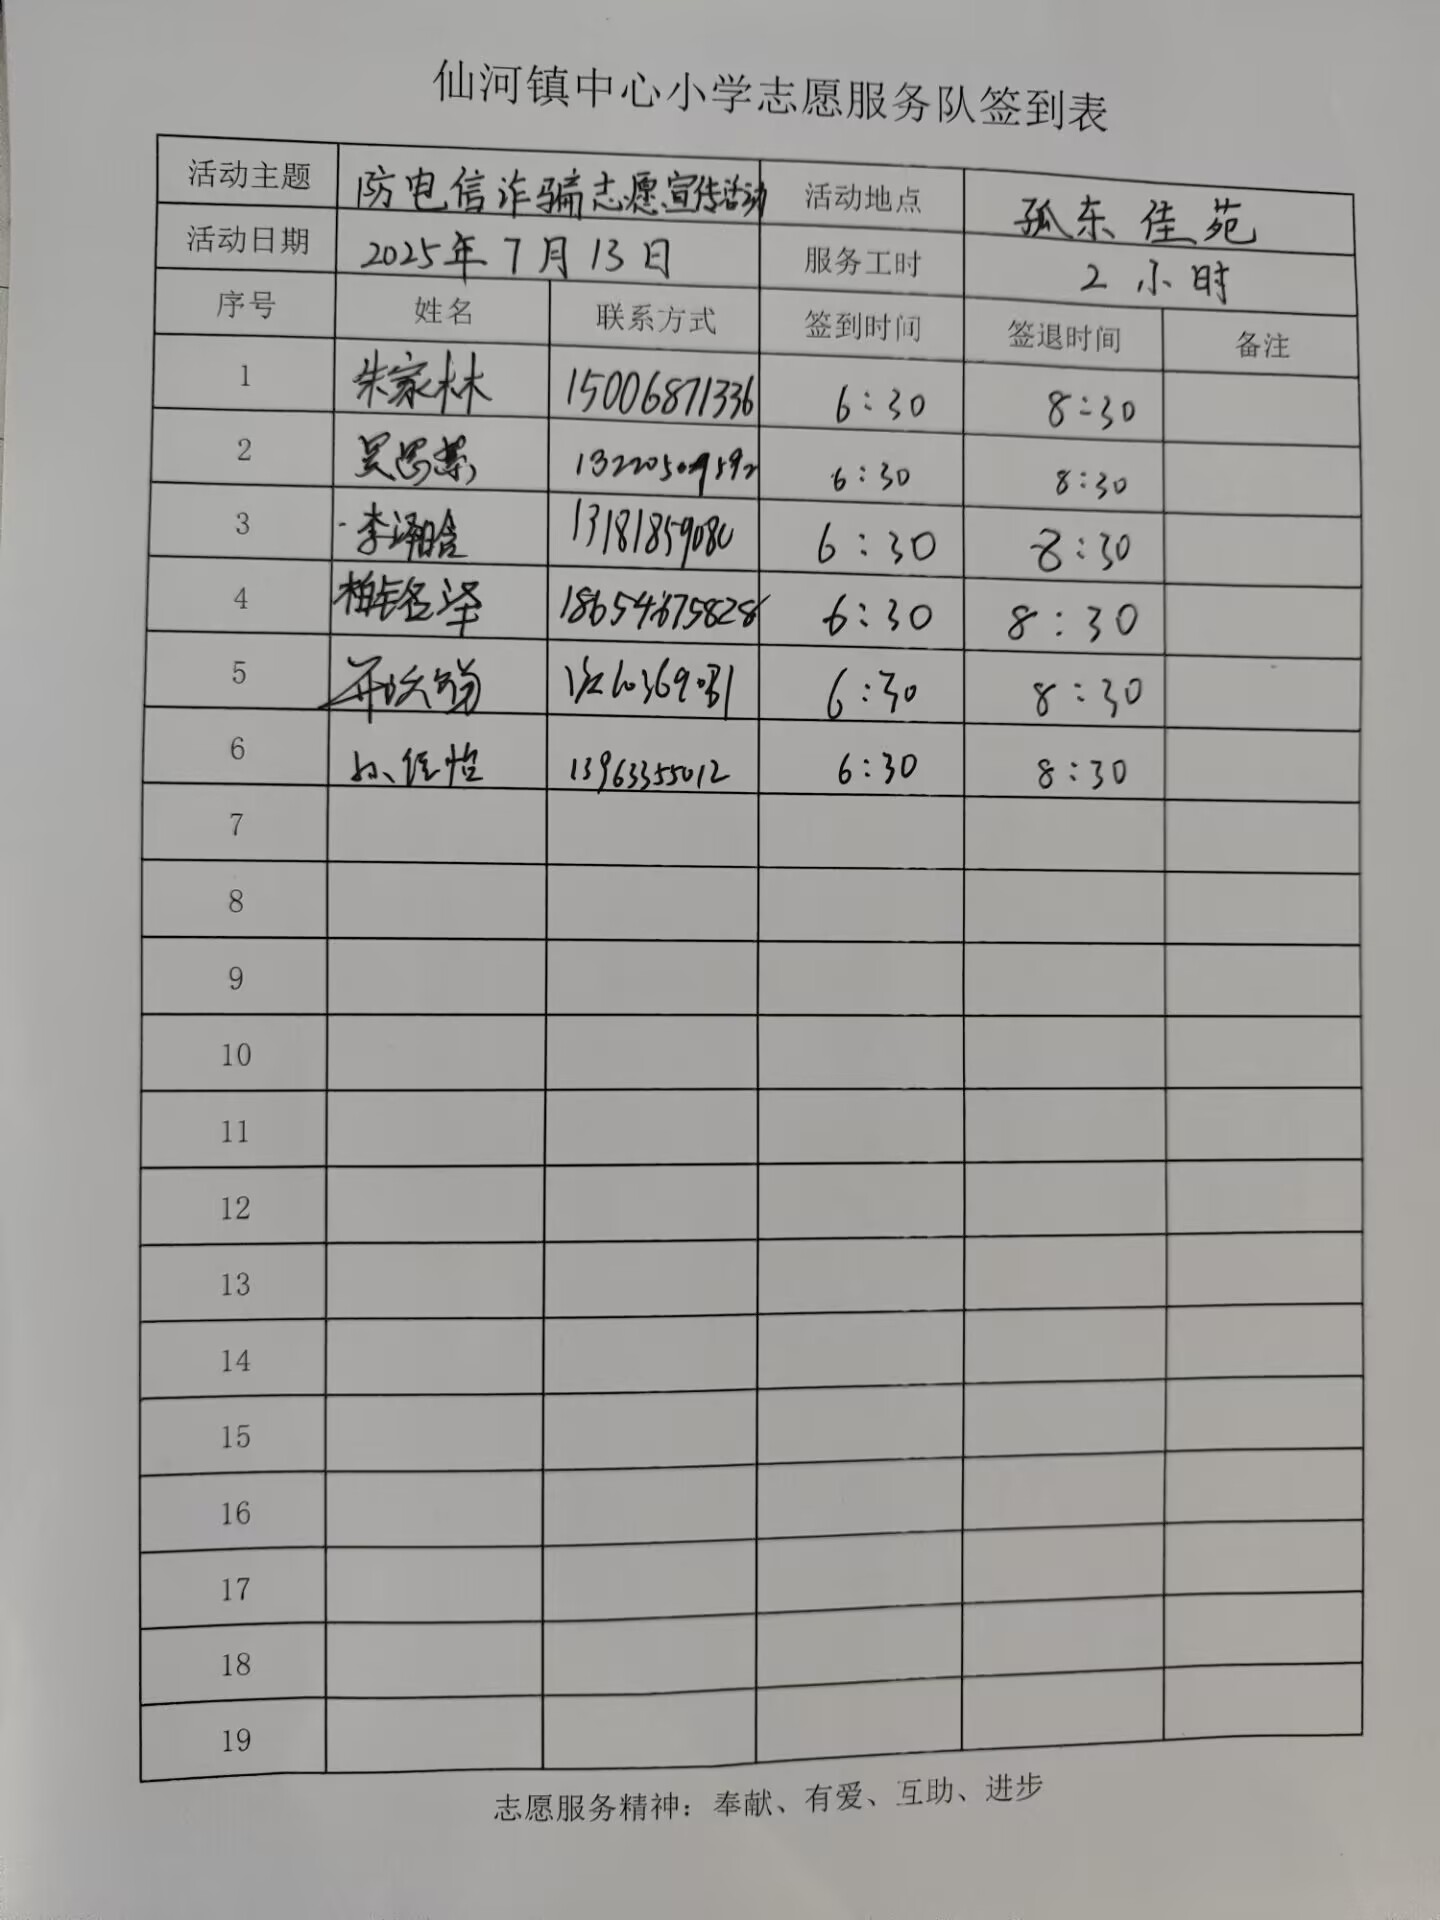 仙河镇中心小学志愿服务队签到表
活动主题 防电信诈骗志愿宣传活动 活动地点 孤东佳苑
活动日期 2025年7月13日 服务工时 2小时
序号 姓名 联系方式 签到时间 签退时间 备注
1 朱家林 15006871336 6:30 8:30
2 13220509592 6:30 8:30
3 李泽晗 13181859080 6:30 8:30
4 柏铭泽 18654675828 6:30 8:30
5 6:30 8:30
6 孙佳怡 13963355012 6:30 8:30
7
8
9
10
11
12
13
14
15
16
17
18
19
志愿服务精神：奉献、有爱、互助、进步